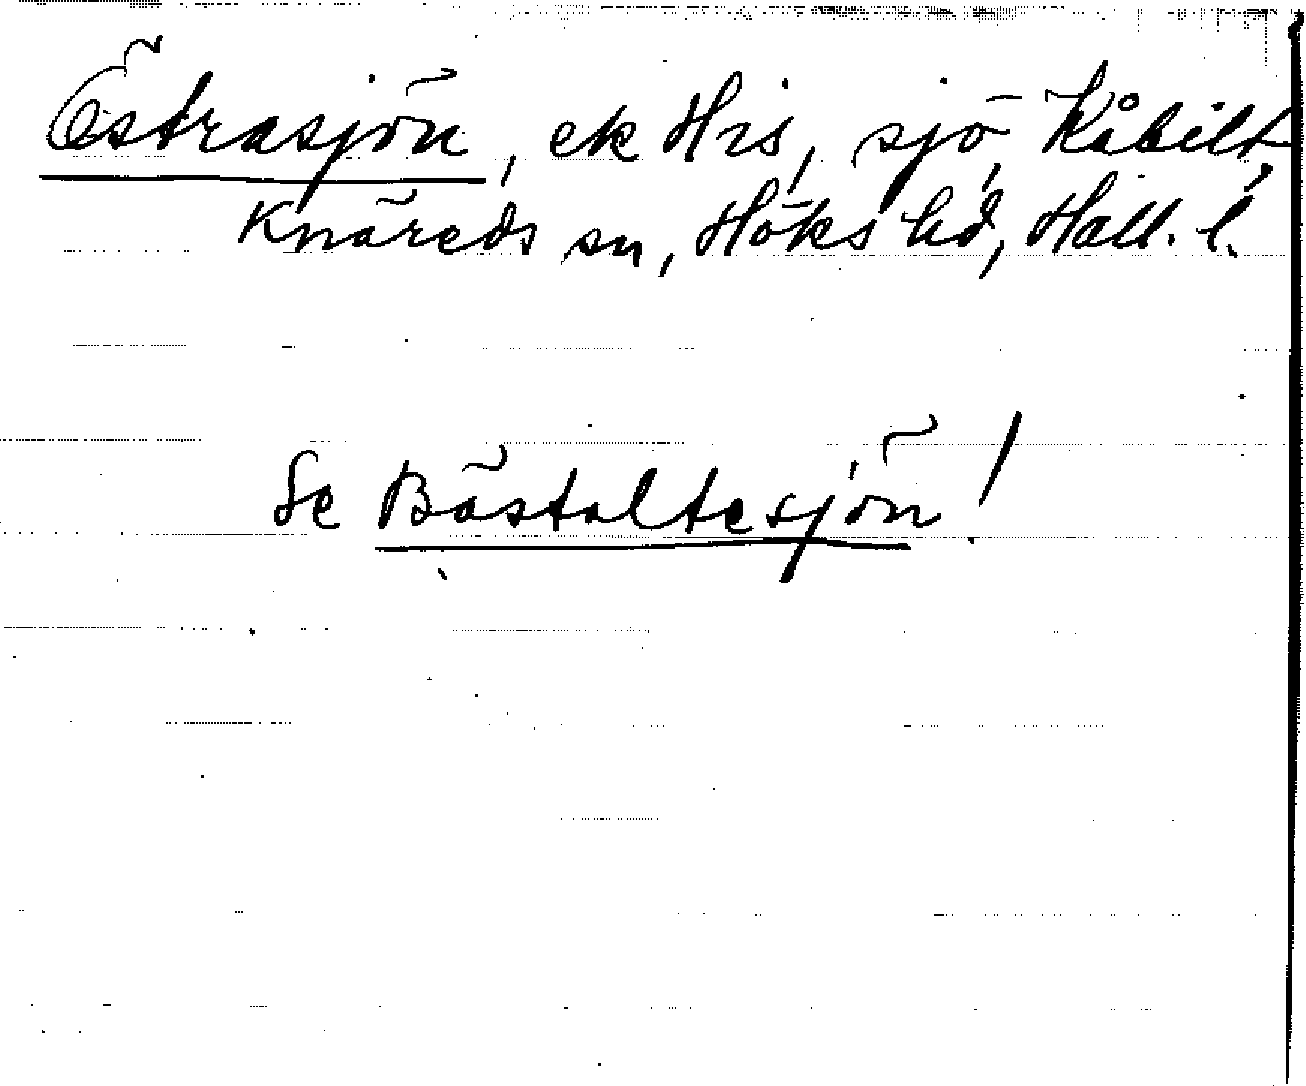 Östrasjön, ek His, sjö Kåbilt,
Knäreds sn, Höks hd, Hall. l.
Se Bästaltesjön!